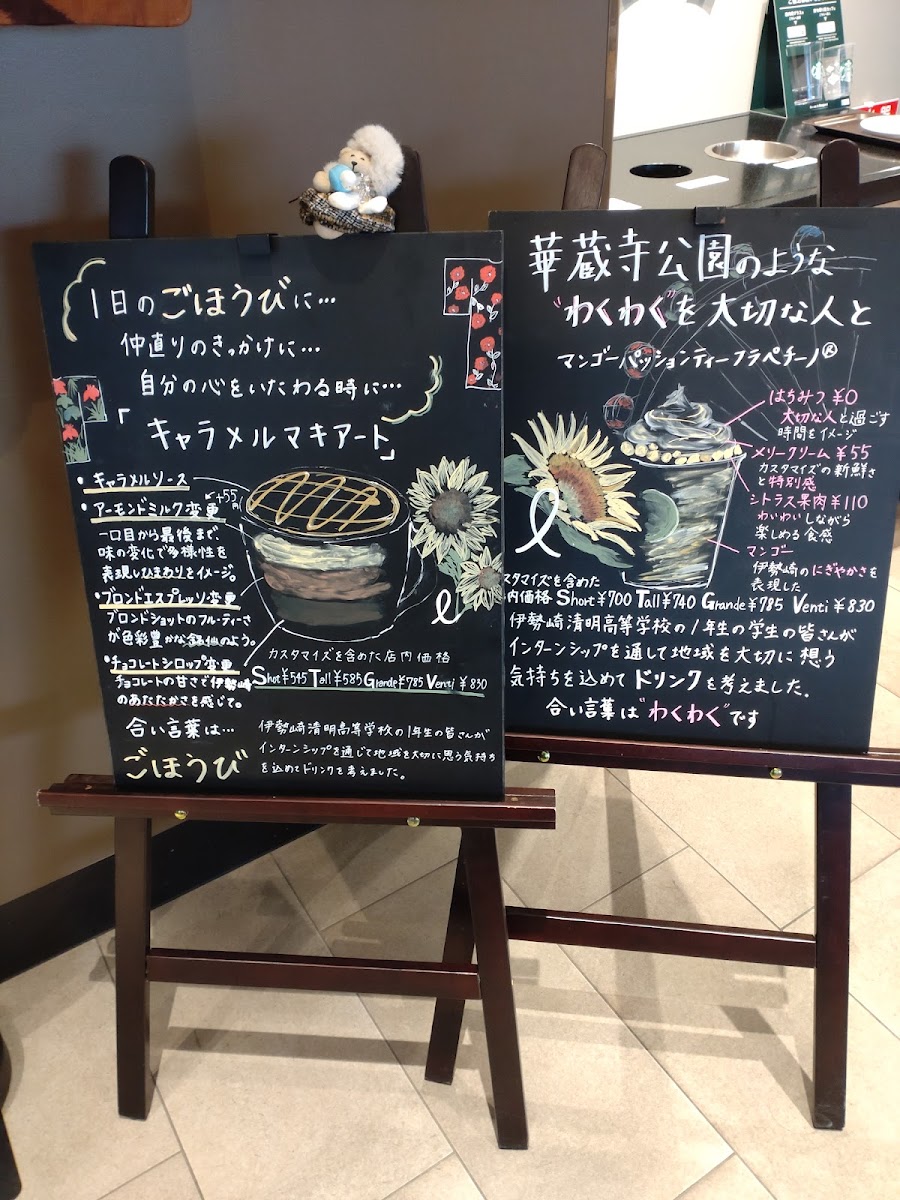 1日のごほうびに…
仲直りのきっかけに…
自分の心をいたわる時に…
「キャラメルマキアート」
・キャラメルソース
・アーモンドミルク変更
+55円
一口目から最後まで、
味の変化で多様性を
表現しひまわりをイメージ。
・ブロンドエスプレッソ変更
ブロンドショットのフルーティーさ
が色彩豊かな銘仙のよう。
・チョコレートシロップ変更
チョコレートの甘さで伊勢崎
のあたたかさを感じて。
カスタマイズを含めた店内価格
Short¥545 Tall¥585 Grande¥785 Venti ¥830
合い言葉は…
ごほうび
伊勢崎清明高等学校の1年生の皆さんが
インターンシップを通じて地域を大切に思う気持ち
を込めてドリンクを考えました。
華蔵寺公園のような
"わくわく"を大切な人と
マンゴーパッションティーフラペチーノ®
はちみつ ¥0
大切な人と過ごす
時間をイメージ
メリークリーム ¥55
カスタマイズの新鮮さ
と特別感
シトラス果肉 ¥110
わいわいしながら
楽しめる食感
マンゴー
伊勢崎のにぎやかさを
表現した
スタマイズを含めた
内価格 Short¥700 Tall¥740 Grande¥785 Venti ¥830
伊勢崎清明高等学校の1年生の学生の皆さんが
インターンシップを通して地域を大切に想う
気持ちを込めてドリンクを考えました.
合い言葉は"わくわく"です